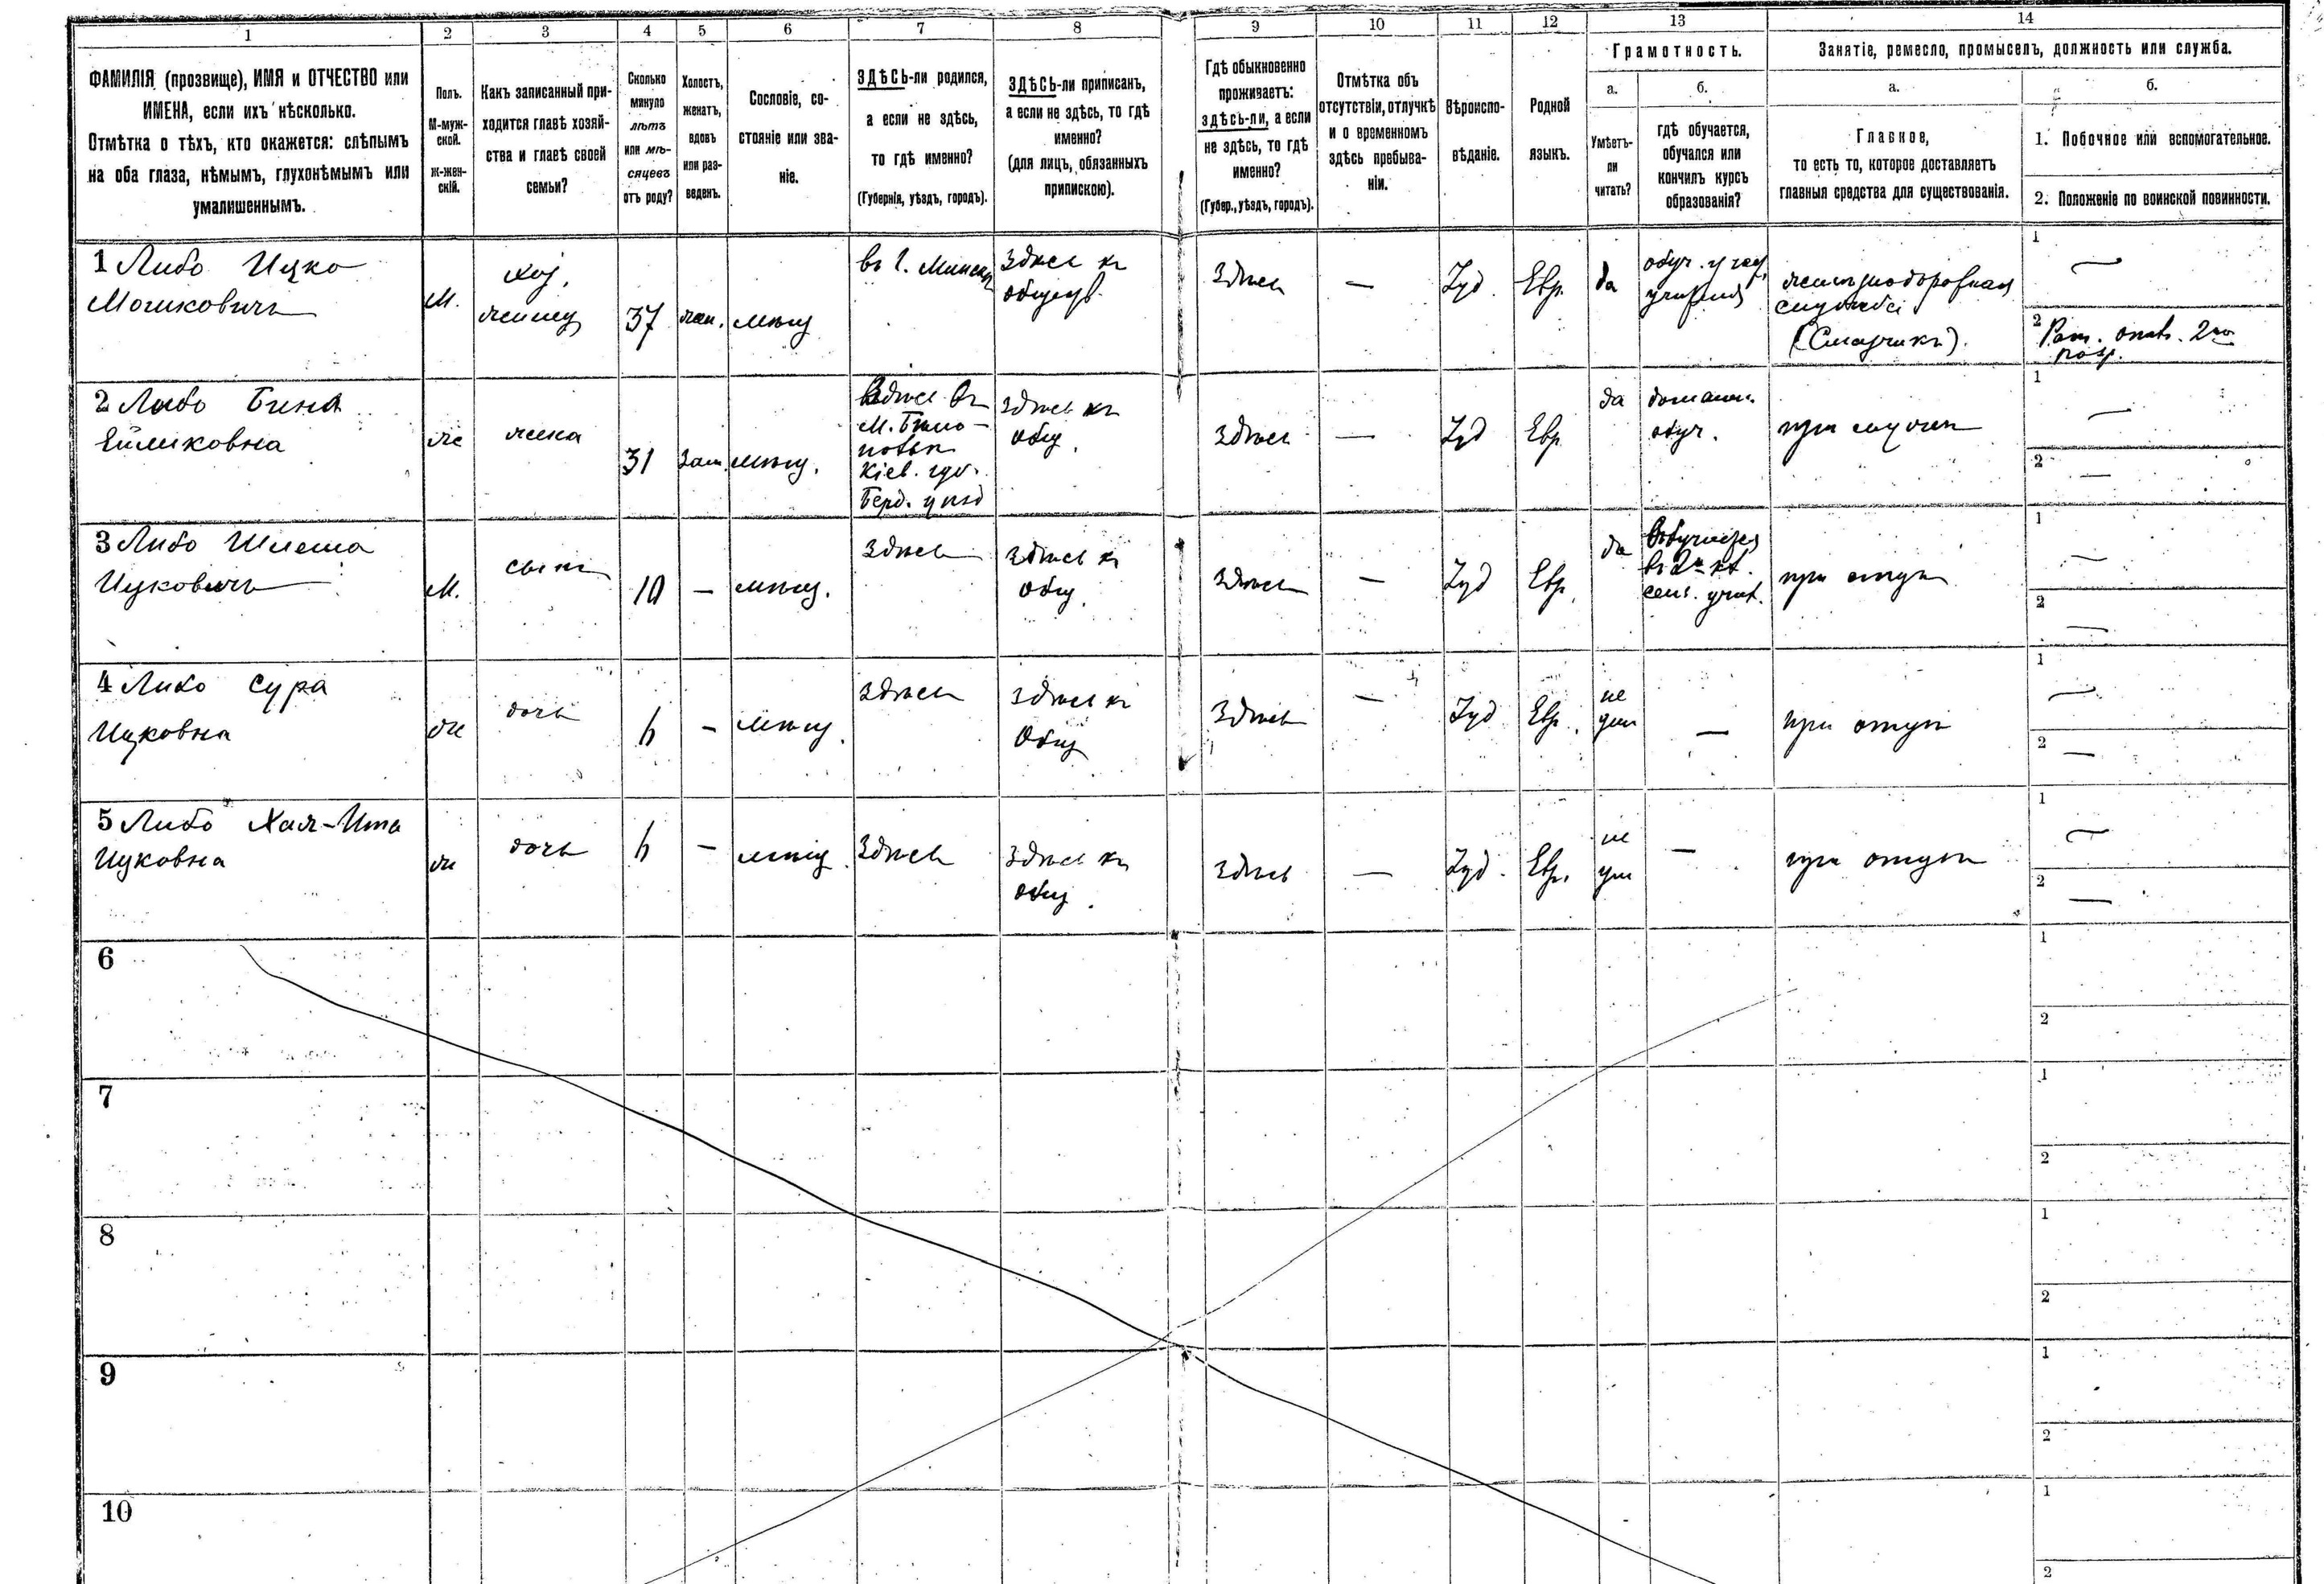 1 2 3 4 5 6 7 8 9 10 11 12 13 14
ФАМИЛІЯ (прозвище), ИМЯ и ОТЧЕСТВО или
ИМЕНА, если ихъ нѣсколько.
Отмѣтка о тѣхъ, кто окажется: слѣпымъ
на оба глаза, нѣмымъ, глухонѣмымъ или
умалишеннымъ.
Полъ.
М-муж-
ской.
Ж-жен-
скій.
Какъ записанный при-
ходится главѣ хозяй-
ства и главѣ своей
семьи?
Сколько
минуло
лѣтъ
или мѣ-
сяцевъ
отъ роду?
Холостъ,
женатъ,
вдовъ
или раз-
веденъ.
Сословіе, со-
стояніе или зва-
ніе.
ЗДѢСЬ-ли родился,
а если не здѣсь,
то гдѣ именно?
(Губернія, уѣздъ, городъ).
ЗДѢСЬ-ли приписанъ,
а если не здѣсь, то гдѣ
именно?
(для лицъ, обязанныхъ
припискою).
Гдѣ обыкновенно
проживаетъ:
здѣсь-ли, а если
не здѣсь, то гдѣ
именно?
(Губер., уѣздъ, городъ).
Отмѣтка объ
отсутствіи, отлучкѣ
и о временномъ
здѣсь пребыва-
ніи.
Вѣроиспо-
вѣданіе.
Родной
языкъ.
Грамотность.
а.
Умѣетъ-
ли
читать?
б.
гдѣ обучается,
обучался или
кончилъ курсъ
образованія?
Занятіе, ремесло, промыселъ, должность или служба.
а.
Главное,
то есть то, которое доставляетъ
главныя средства для существованія.
б.
1. Побочное или вспомогательное.
2. Положеніе по воинской повинности.
1 Либо Ицко
Мошковичъ
М.
хоз.
37
жен.
мѣщ
въ г. Минскѣ
Здѣсь къ
Здѣсь
—
Іуд.
Евр.
да
1 —
2
2 Либо Бина
ж
жена
31
зам.
мѣщ.
Кіев. губ.
Берд. уѣзд
здѣсь къ
общ.
здѣсь
—
Іуд
Евр.
да
домашн.
обуч.
при мужѣ
1 —
2 —
3 Либо
Ицковичъ
М.
сынъ
10
—
мѣщ.
Здѣсь
здѣсь къ
общ.
здѣсь
—
Іуд
Евр.
да
при отцѣ
1 —
2 —
4 Либо Сура
Ицковна
ж
дочь
6
—
мѣщ.
здѣсь
здѣсь къ
общ
здѣсь
—
Іуд
Евр.
не
ум
—
при отцѣ
1 —
2 —
5 Либо Хая-Ита
Ицковна
ж
дочь
6
—
мѣщ.
Здѣсь
здѣсь къ
общ.
здѣсь
—
Іуд.
Евр.
не
ум
—
при отцѣ
1 —
2 —
6
1
2
7
1
2
8
1
2
9
1
2
10
1
2